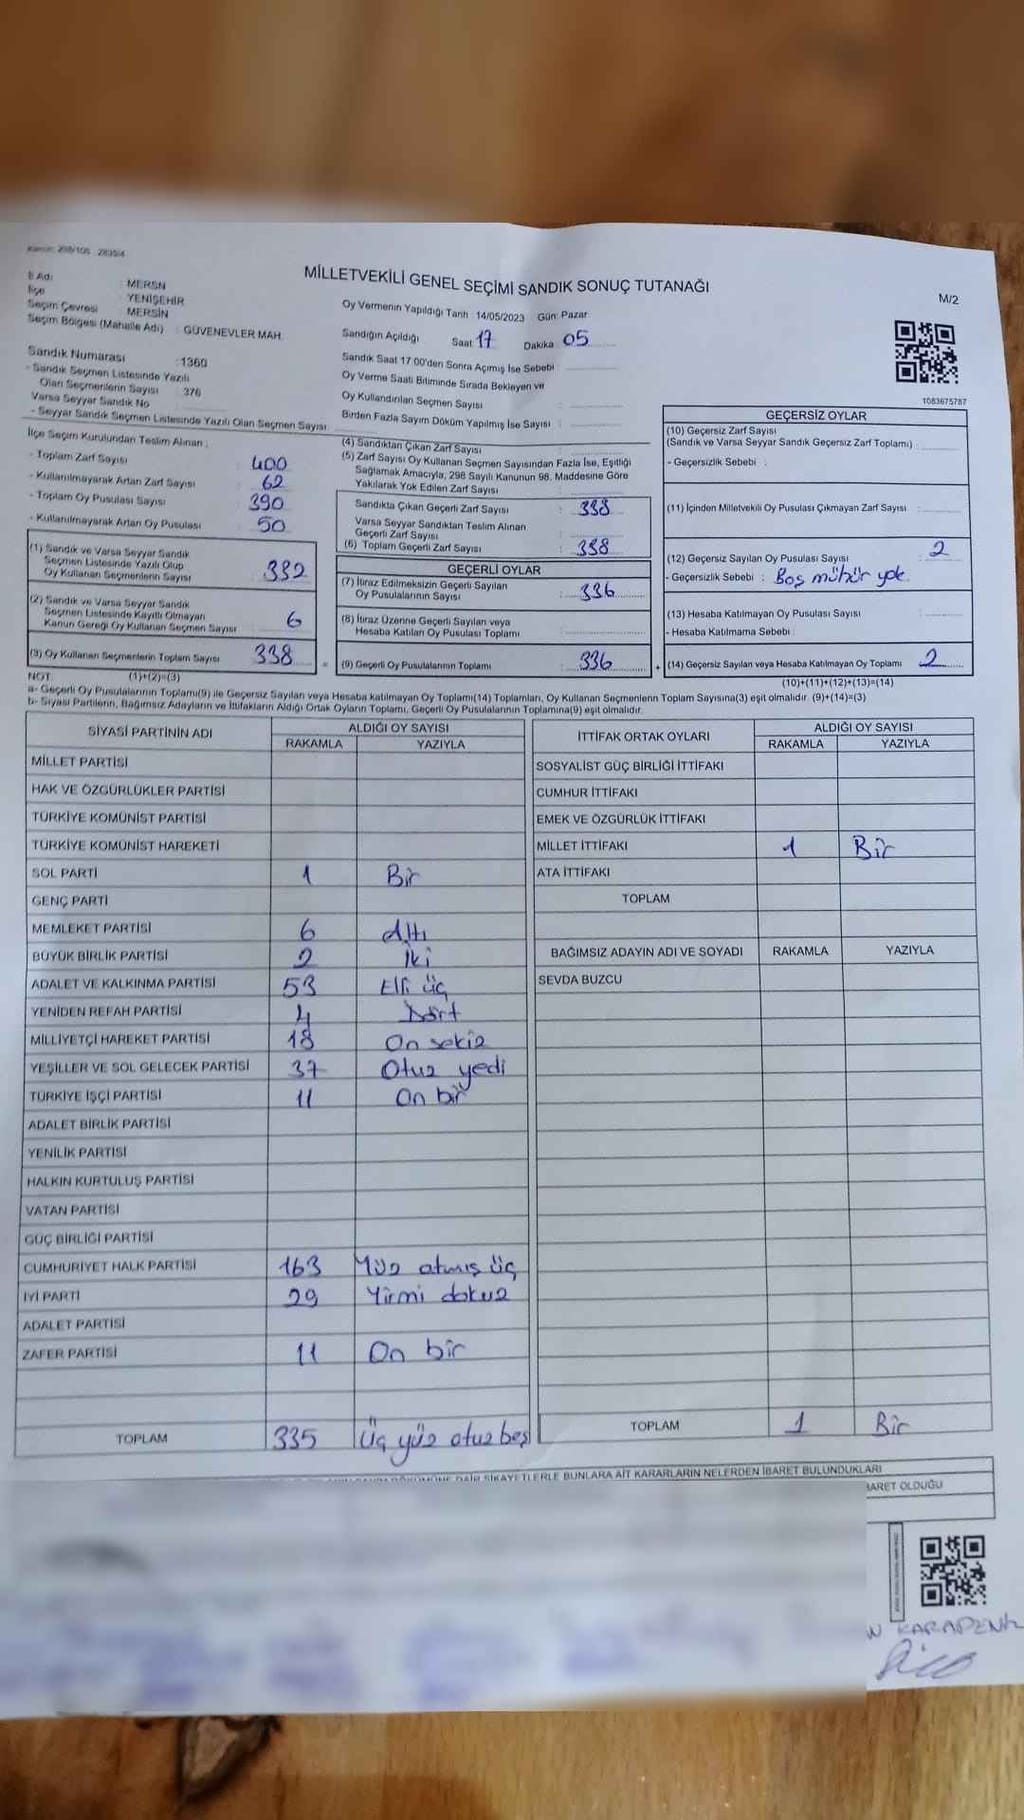 MİLLETVEKİLİ GENEL SEÇİMİ SANDIK SONUÇ TUTANAĞI
M/2
İl Adı : MERSİN
İlçe : YENİŞEHİR
Seçim Çevresi : MERSİN
Seçim Bölgesi (Mahalle Adı) : GÜVENEVLER MAH.
Sandık Numarası : 1360
- Sandık Seçmen Listesinde Yazılı
Olan Seçmenlerin Sayısı : 376
Varsa Seyyar Sandık No
- Seyyar Sandık Seçmen Listesinde Yazılı Olan Seçmen Sayısı :
Oy Vermenin Yapıldığı Tarih : 14/05/2023 Gün: Pazar
Sandığın Açıldığı Saat 17 Dakika 05
Sandık Saat 17:00'den Sonra Açımış İse Sebebi
Oy Verme Saati Bitiminde Sırada Bekleyen ve
Oy Kullandırılan Seçmen Sayısı :
Birden Fazla Sayım Döküm Yapılmış İse Sayısı :
1083675787
İlçe Seçim Kurulundan Teslim Alınan :
- Toplam Zarf Sayısı 400
- Kullanılmayarak Artan Zarf Sayısı 62
- Toplam Oy Pusulası Sayısı 390
- Kullanılmayarak Artan Oy Pusulası 50
(1) Sandık ve Varsa Seyyar Sandık
Seçmen Listesinde Yazılı Olup
Oy Kullanan Seçmenlerin Sayısı 332
(2) Sandık ve Varsa Seyyar Sandık
Seçmen Listesinde Kayıtlı Olmayan
Kanun Gereği Oy Kullanan Seçmen Sayısı 6
(3) Oy Kullanan Seçmenlerin Toplam Sayısı 338
(4) Sandıktan Çıkan Zarf Sayısı :
(5) Zarf Sayısı Oy Kullanan Seçmen Sayısından Fazla İse, Eşitliği
Sağlamak Amacıyla, 298 Sayılı Kanunun 98. Maddesine Göre
Yakılarak Yok Edilen Zarf Sayısı :
Sandıkta Çıkan Geçerli Zarf Sayısı : 338
Varsa Seyyar Sandıktan Teslim Alınan
Geçerli Zarf Sayısı :
(6) Toplam Geçerli Zarf Sayısı : 338
GEÇERLİ OYLAR
(7) İtiraz Edilmeksizin Geçerli Sayılan
Oy Pusulalarının Sayısı : 336
(8) İtiraz Üzerine Geçerli Sayılan veya
Hesaba Katılan Oy Pusulası Toplamı :
(9) Geçerli Oy Pusulalarının Toplamı : 336
GEÇERSİZ OYLAR
(10) Geçersiz Zarf Sayısı
(Sandık ve Varsa Seyyar Sandık Geçersiz Zarf Toplamı) :
- Geçersizlik Sebebi :
(11) İçinden Milletvekili Oy Pusulası Çıkmayan Zarf Sayısı :
(12) Geçersiz Sayılan Oy Pusulası Sayısı : 2
- Geçersizlik Sebebi : Boş mühür yok.
(13) Hesaba Katılmayan Oy Pusulası Sayısı :
- Hesaba Katılmama Sebebi :
(14) Geçersiz Sayılan veya Hesaba Katılmayan Oy Toplamı 2
NOT: (1)+(2)=(3)
(10)+(11)+(12)+(13)=(14)
a- Geçerli Oy Pusulalarının Toplamı(9) ile Geçersiz Sayılan veya Hesaba katılmayan Oy Toplamı(14) Toplamları, Oy Kullanan Seçmenlerin Toplam Sayısına(3) eşit olmalıdır. (9)+(14)=(3)
b- Siyasi Partilerin, Bağımsız Adayların ve İttifakların Aldığı Ortak Oyların Toplamı, Geçerli Oy Pusulalarının Toplamına(9) eşit olmalıdır.
SİYASİ PARTİNİN ADI ALDIĞI OY SAYISI
RAKAMLA YAZIYLA
MİLLET PARTİSİ
HAK VE ÖZGÜRLÜKLER PARTİSİ
TÜRKİYE KOMÜNİST PARTİSİ
TÜRKİYE KOMÜNİST HAREKETİ
SOL PARTİ 1 Bir
GENÇ PARTİ
MEMLEKET PARTİSİ 6 Altı
BÜYÜK BİRLİK PARTİSİ 2 İki
ADALET VE KALKINMA PARTİSİ 53 Elli üç
YENİDEN REFAH PARTİSİ 4 Dört
MİLLİYETÇİ HAREKET PARTİSİ 18 On sekiz
YEŞİLLER VE SOL GELECEK PARTİSİ 37 Otuz yedi
TÜRKİYE İŞÇİ PARTİSİ 11 On bir
ADALET BİRLİK PARTİSİ
YENİLİK PARTİSİ
HALKIN KURTULUŞ PARTİSİ
VATAN PARTİSİ
GÜÇ BİRLİĞİ PARTİSİ
CUMHURİYET HALK PARTİSİ 163 Yüz atmış üç
İYİ PARTİ 29 Yirmi dokuz
ADALET PARTİSİ
ZAFER PARTİSİ 11 On bir
TOPLAM 335 Üç yüz otuz beş
İTTİFAK ORTAK OYLARI ALDIĞI OY SAYISI
RAKAMLA YAZIYLA
SOSYALİST GÜÇ BİRLİĞİ İTTİFAKI
CUMHUR İTTİFAKI
EMEK VE ÖZGÜRLÜK İTTİFAKI
MİLLET İTTİFAKI 1 Bir
ATA İTTİFAKI
TOPLAM
BAĞIMSIZ ADAYIN ADI VE SOYADI RAKAMLA YAZIYLA
SEVDA BUZCU
TOPLAM 1 Bir
DAİR ŞİKAYETLERLE BUNLARA AİT KARARLARIN NELERDEN İBARET BULUNDUKLARI
BARET OLDUĞU